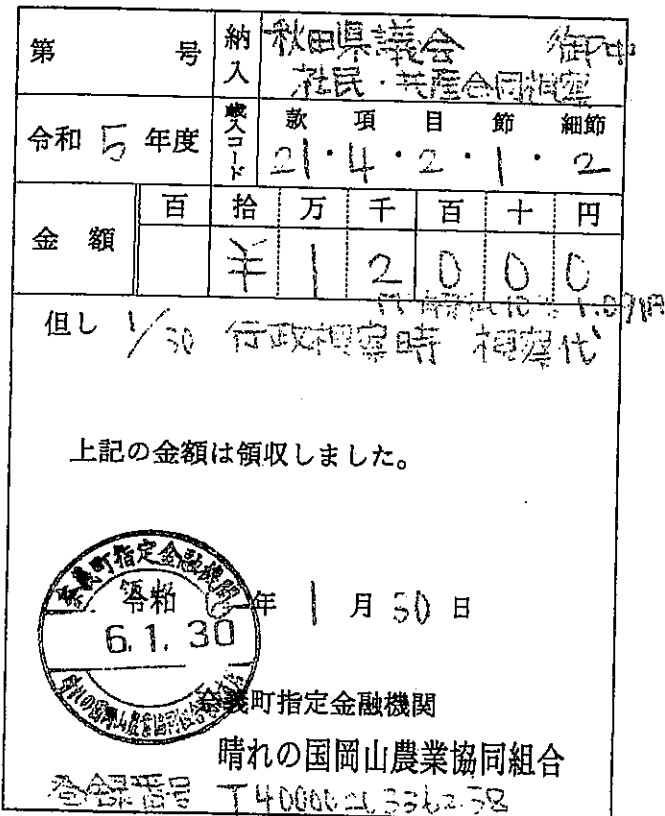 第 号 納入 秋田県議会 御中
社民・共産合同視察
令和 5 年度 歳入コード 款 項 目 節 細節
21・4・2・1・2
金額 百 拾 万 千 百 十 円
¥ 1 2 0 0 0
但し 1/30 行政視察時 視察代
上記の金額は領収しました。
町指定金融機関
6.1.30
年 1 月 30 日
義町指定金融機関
晴れの国岡山農業協同組合
登録番号